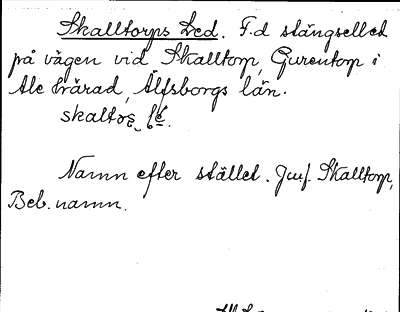 Skalltorps Led. F.d stängselled
på vägen vid Skalltorp, Gurentorp i
Ale härad, Älfsborgs län.
Namn efter stället. Jmf. Skalltorp,
Beb. namn.